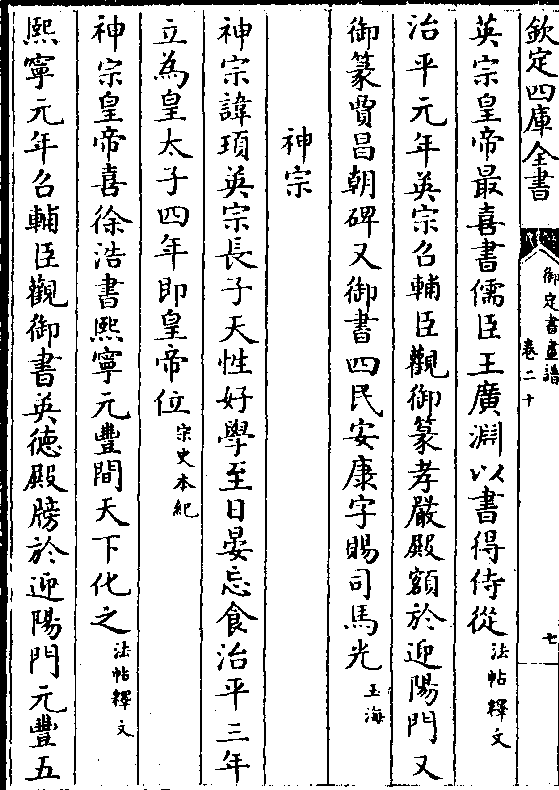 欽定四庫全書
御定書畫譜
卷二十
七
英宗皇帝最喜書儒臣王廣淵以書得侍從法帖釋文
治平元年英宗召輔臣觀御篆孝嚴殿額於迎陽門又
御篆賈昌朝碑又御書四民安康字賜司馬光玉海
神宗
神宗諱頊英宗長子天性好學至日晏忘食治平三年
立為皇太子四年即皇帝位宗史本紀
神宗皇帝喜徐浩書熙寧元豐間天下化之法帖釋文
熙寧元年召輔臣觀御書英德殿牓於迎陽門元豐五